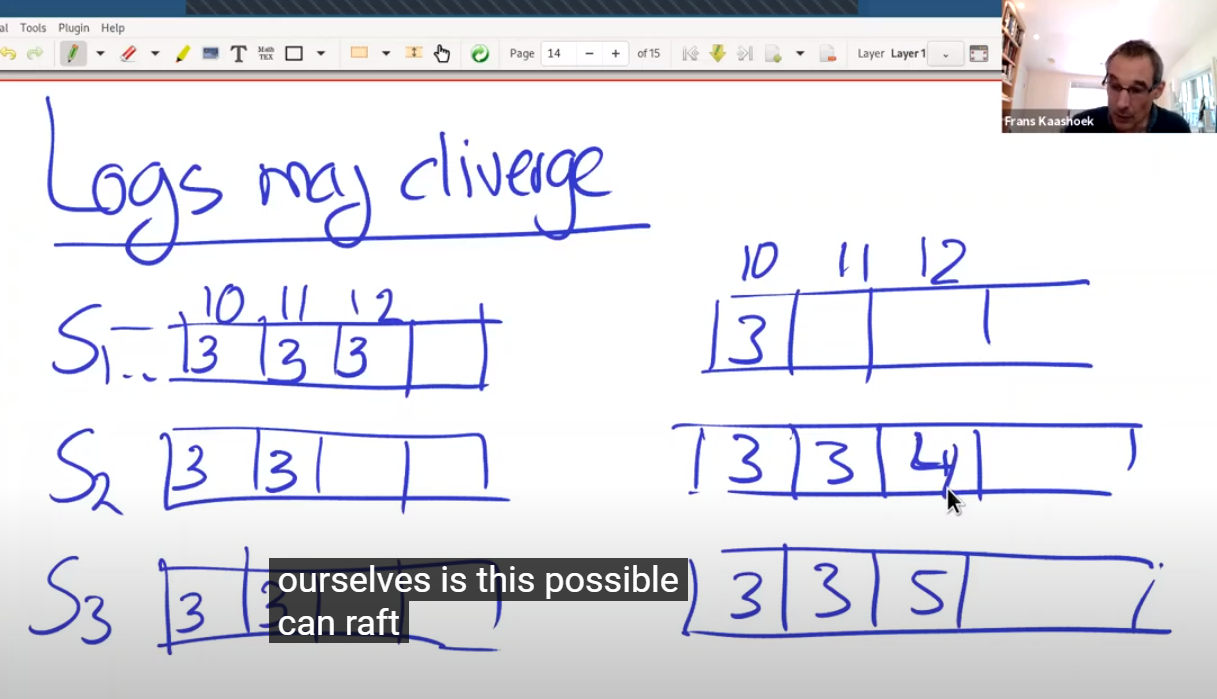 al Tools Plugin Help
T Math TEX Page 14 − + of 15 Layer Layer 1
Frans Kaashoek
Logs may diverge
10 11 12
S1 3 3 3
S2 3 3
S3 3 3
10 11 12
3
3 3 4
3 3 5
ourselves is this possible
can raft